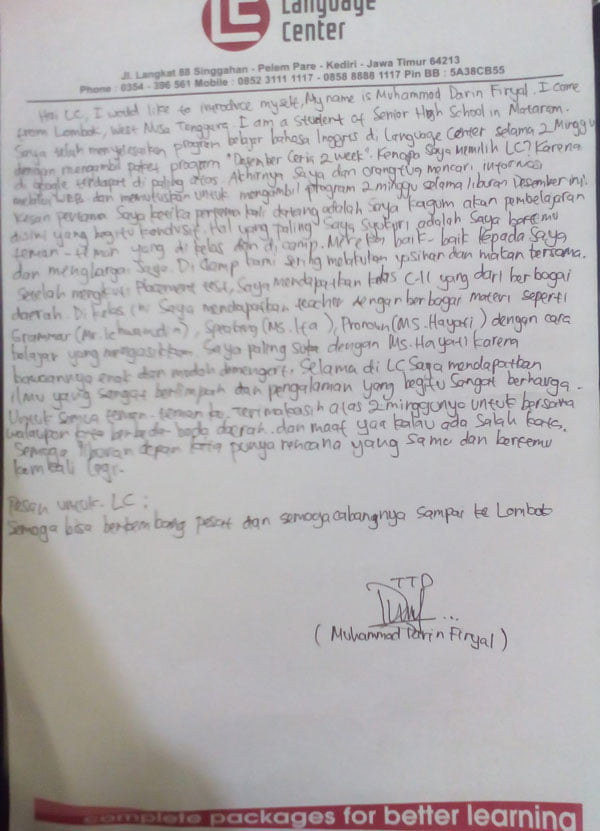 LC Language
Center
Jl. Langkat 88 Singgahan - Pelem Pare - Kediri - Jawa Timur 64213
Phone : 0354 - 396 561 Mobile : 0852 3111 1117 - 0858 8888 1117 Pin BB : 5A38CB55
Hai LC, I would like to introduce myself, My name is Muhammad Darin Firyal. I come
from Lombok, West Nusa Tenggara. I am a Student of Senior High School in Mataram.
Saya telah menyelesaikan program belajar bahasa Inggris di Language Center selama 2 Minggu
dengan mengambil paket program "Desember Ceria 2 week". Kenapa Saya memilih LC? Karena
di google terdapat di paling atas. Akhirnya Saya dan orang tua mencari informasi
melalui WEB dan memutuskan untuk mengambil program 2 minggu selama liburan Desember ini.
Kesan pertama Saya ketika pertama kali datang adalah Saya kagum akan pembelajaran
disini yang begitu kondusif. Hal yang paling Saya Syukuri adalah Saya bertemu
teman - teman yang di kelas dan di camp. Mereka baik - baik kepada Saya
dan menghargai Saya. Di Camp kami sering melakukan yasinan dan makan bersama.
Setelah mengikuti Placement test, Saya mendapatkan kelas C-11 yang dari berbagai
daerah. Di kelas ini Saya mendapatkan teacher dengan berbagai materi seperti
Grammar (Mr. ), Speaking (Ms. Ita), Pronoun (MS. Hayati) dengan cara
belajar yang mengasikkan. Saya paling Suka dengan Ms. Hayati karena
bawaannya enak dan mudah dimengerti. Selama di LC Saya mendapatkan
ilmu yang sangat berlimpah dan pengalaman yang begitu sangat berharga.
Untuk Semua teman - teman ku, Terimakasih atas 2 minggunya untuk bersama
walaupun kita berbeda - beda daerah. dan maaf yaa kalau ada Salah kata.
Semoga liburan depan kita punya rencana yang sama dan bertemu
kembali lagi.
Pesan untuk LC :
Semoga bisa berkembang pesat dan semoga cabangnya sampai ke Lombok
TTD
( Muhammad Darin Firyal )
complete packages for better learning